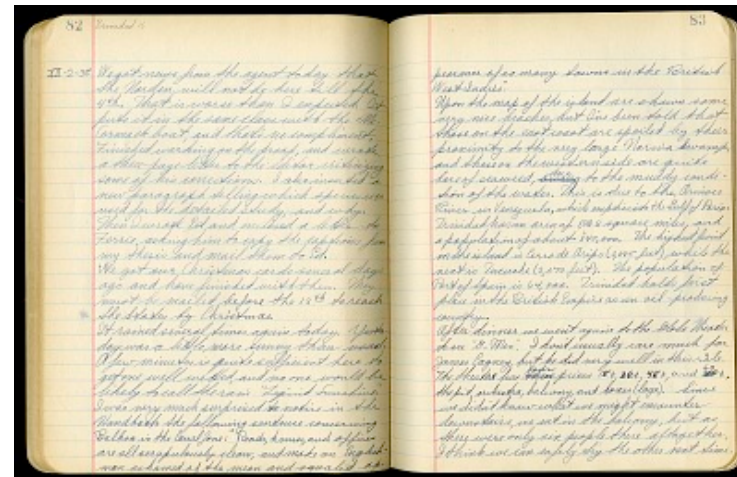 82 Trinidad
XII-2-35 We got news from the agent today that
the Norden will not be here till the
4th. That is worse than I expected. It
puts it in the same class with the
boat, and that's no compliment.
Finished working on the proof, and wrote
a three page letter to the editor criticizing
some of his corrections. I also inserted a
new paragraph telling which specimens
used for the detailed study, and why.
Then I wrote Ed and enclosed a note to
Ferris, asking him to copy the captions from
my thesis and mail them to Ed.
We got our Christmas cards several days
ago and have finished with them. They
must be mailed before the 10th to reach
the States by Christmas.
It rained several times again today. Yester-
day was a little more sunny than usual.
A few minutes is quite sufficient here to
get one well soaked, and no one would be
likely to call the rain "Liquid Sunshine".
I was very much surprised to notice in the
Handbook the following sentence concerning
Balboa in the Canal Zone: "Roads, houses, and offices
are all scrupulously clean, and make an English-
man ashamed of the mean and squalid ap-
83
pearance of so many towns in the British
West Indies."
Upon the map of the island are shown some
very nice beaches, but I've been told that
those on the east coast are spoiled by their
proximity to the very large Nariva Swamp,
and those on the western side are quite
of seaweed, to the muddy condi-
tion of the water. This is due to the Orinoco
River, in Venezuela, which empties into the Gulf of Paria.
Trinidad has an area of square miles, and
a population of about. The highest point
on the island is Cerro de Aripo (3,085 feet), while the
next is Tucuche (3,075 feet). The population of
Port of Spain is. Trinidad holds first
place in the British Empire as an oil producing
country.
After dinner we went again to the Globe Theater
to see "G. Men". I don't usually care much for
James Cagney, but he did very well in this role.
The theater has prices: 20¢, 48¢, and
the pit, orchestra, balcony and boxes (loge). Since
we didn't know what we might encounter
downstairs, we sat in the balcony, but as
there were only six people there altogether,
I think we can safely try the other next time.